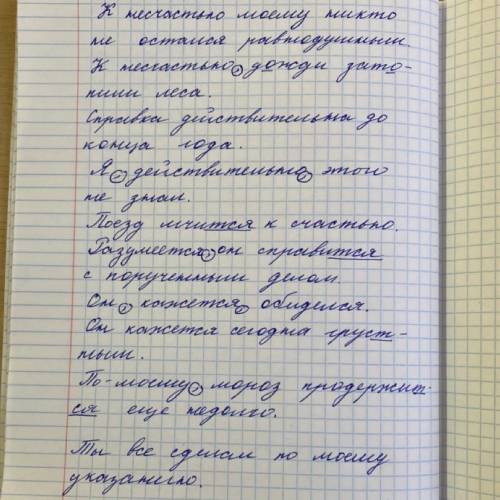 К несчастью моему никто
не остался равнодушным.
К несчастью, дожди зато-
пили леса.
Справка действительна до
конца года.
Я, действительно, этого
не знал.
Поезд мчится к счастью.
Разумеется, он справится
с порученным делом.
Он, кажется, обиделся.
Он кажется сегодня груст-
ным.
По-моему, мороз продержит-
ся еще недолго.
Ты все сделал по моему
указанию.